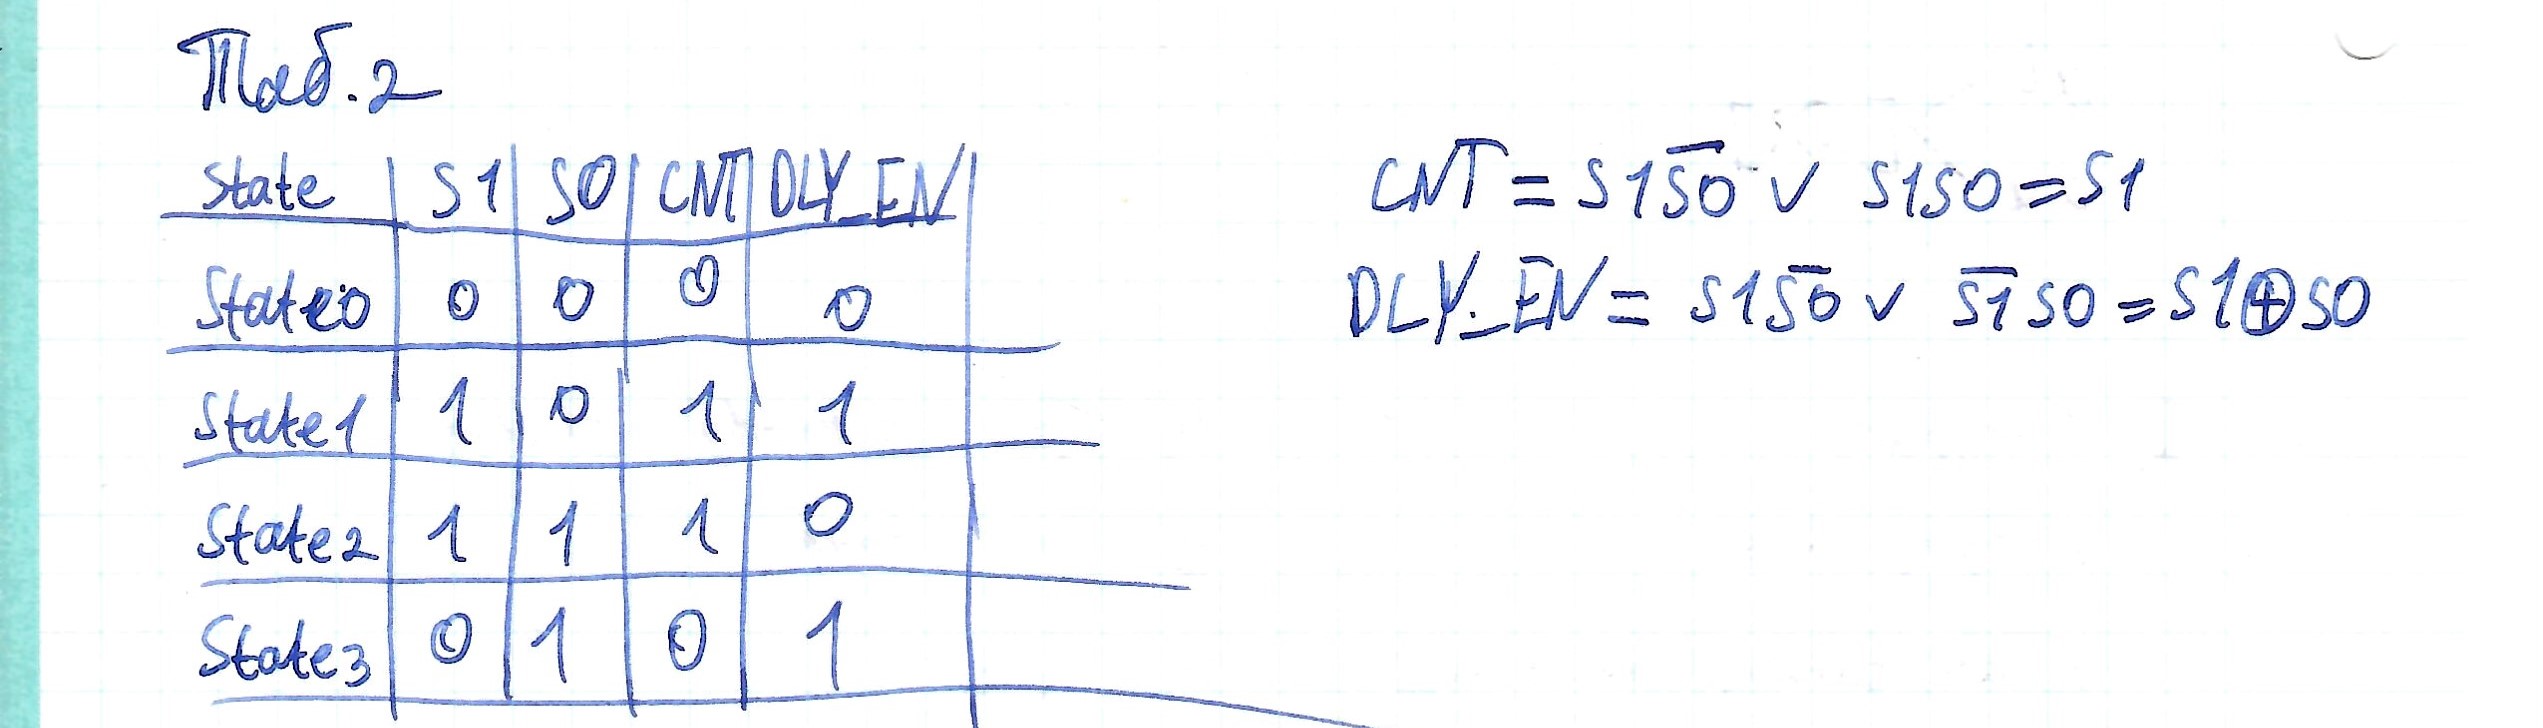 Таб.2
State S1 S0 CNT DLY_EN
State0 0 0 0 0
State1 1 0 1 1
State2 1 1 1 0
State3 0 1 0 1
CNT = S1S̅0̅ ∨ S1S0 = S1
DLY_EN = S1S̅0̅ ∨ S̅1̅S0 = S1⊕S0